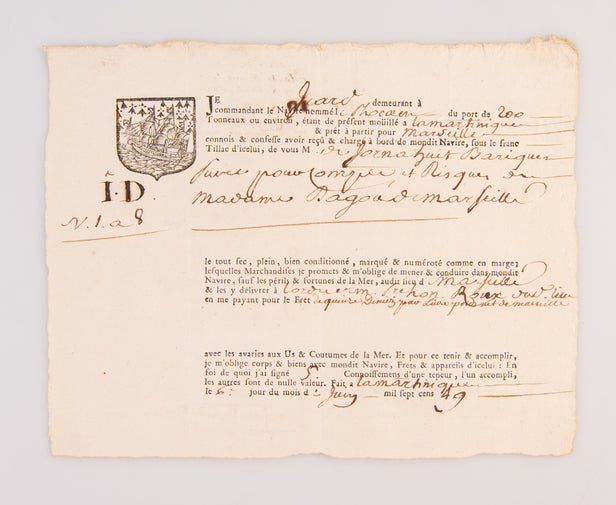 JE demeurant à
commandant le Navire nommé le Phocéen du port de 200
Tonneaux ou environ, étant de présent mouillé a Lamartinique
& prêt à partir pour Marseille
connois & confesse avoir reçû & chargé à bord de mondit Navire, sous le franc
Tillac d'icelui, de vous M de huit Bariques
Sucre pour Compte et Risques de
madame marseille
Ĩ·D.
N. 1. a 8
le tout sec, plein, bien conditionné, marqué & numéroté comme en marge;
lesquelles Marchandises je promets & m'oblige de mener & conduire dans mondit
Navire, sauf les périls & fortunes de la Mer, audit lieu d marseille
& les y délivrer à Roux
en me payant pour le Fret de quinze Deniers pour Livre poid net de marseille
avec les avaries aux Us & Coutumes de la Mer. Et pour ce tenir & accomplir,
je m'oblige corps & biens avec mondit Navire, Frets & appareils d'icelui: En
foi de quoi j'ai signé 5 Connoissemens d'une teneur, l'un accompli,
les autres sont de nulle valeur. Fait a Lamartinique
le 6 jour du mois de Juin mil sept cens 49